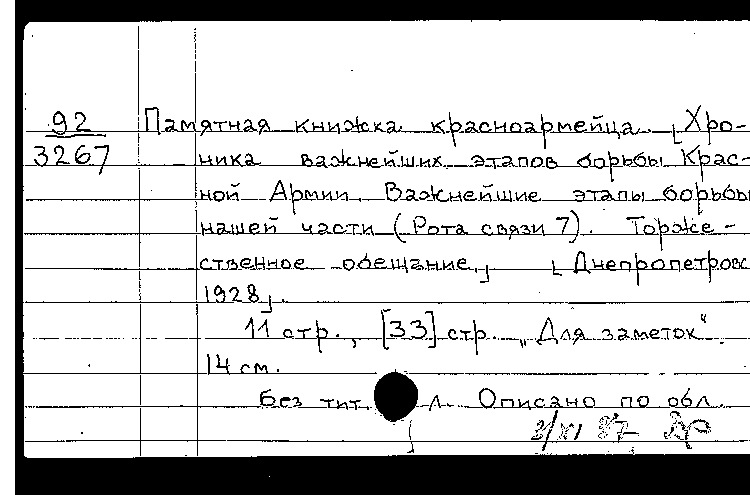 92 Памятная книжка красноармейца. [Хро-
3267 ника важнейших этапов борьбы Крас-
ной Армии. Важнейшие этапы борьбы
нашей части (Рота связи 7). Торже-
ственное обещание.] [Днепропетровск
1928].
11 стр., [33] стр. „Для заметок“.
14 см.
Без тит. л. Описано по обл.
2/XI 87